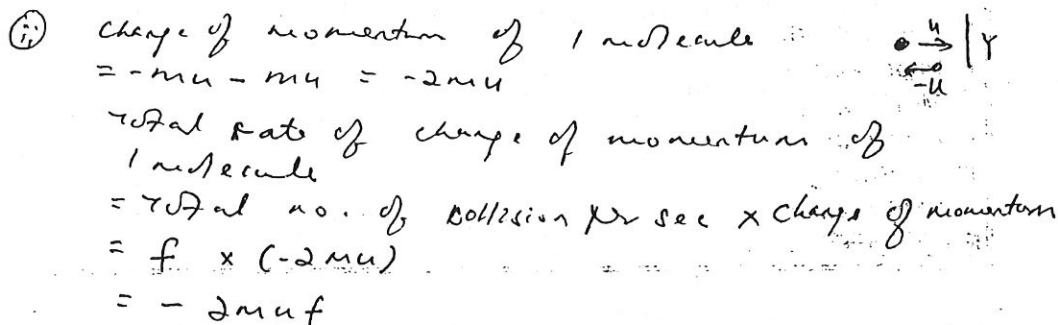 (ii) change of momentum of 1 molecule
= -mu - mu = -2mu
Total rate of change of momentum of
1 molecule
= Total no. of collision per sec x change of momentum
= f x (-2mu)
= - 2muf
u
Y
-u